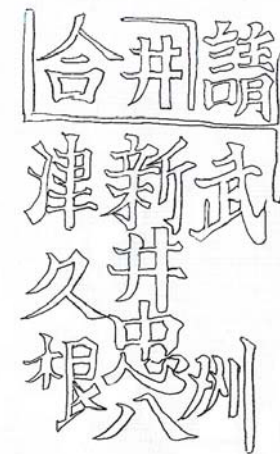 請井合
武州
新井忠八
津久根